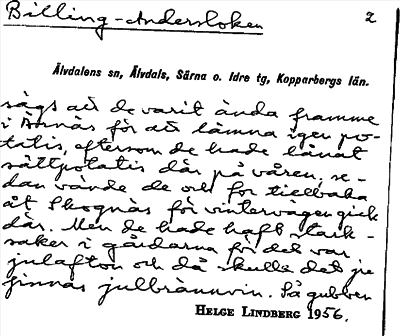 Billing-Andersloken 2
Älvdalens sn, Älvdals, Särna o. Idre tg, Kopparbergs län.
sägs att de varit ända framme
i Åsnäs för att lämna igen po-
tatis, eftersom de hade lånat
sättpotatis där på våren, se-
dan vände de och for tillbaka
åt Skognäs för vintervägen gick
där. Men de hade haft stark-
saker i gårdarna för det var
julafton och då skulle det ju
finnas julbrännvin. Så gubben
HELGE LINDBERG 1956.